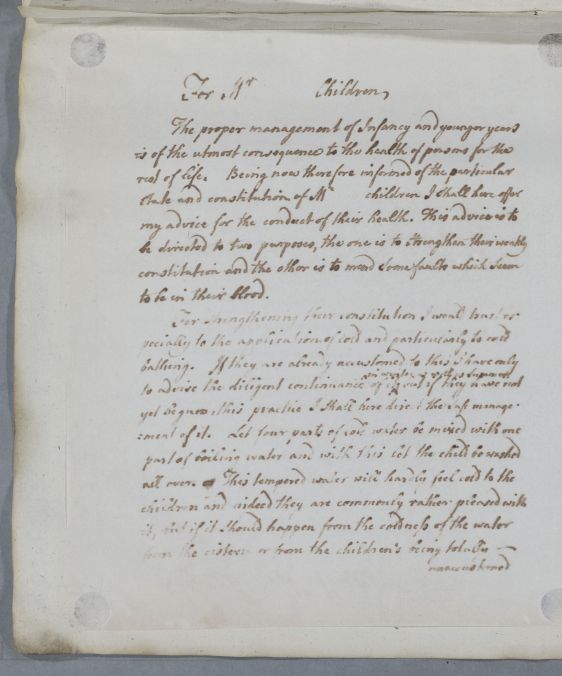 For Mr Children,
The proper management of Infancy and younger years
is of the utmost consequence to the health of persons for the
rest of life. Being now therefore informed of the particular
state and constitution of Mr children I shall here offer
my advice for the conduct of their health. This advice is to
be directed to two purposes, the one is to strengthen their weakly
constitution and the other is to mend some faults which seem
to be in their blood.
For strengthening their constitution I would trust es-
pecially to the application of cold and particularly to cold
bathing. If they are already accustomed to this I have only
in winter as well as summer
to advise the diligent continuance of it, but if they have not
yet begun this practice I shall here direct the safe manage-
-ment of it. Let four parts of cold water be mixed with one
part of boiling water and with this let the child be washed
all over. This tempered water will hardly feel cold to the
children and indeed they are commonly rather pleased with
it, but if it should happen from the coldness of the water
from the cistern or from the children's being totally
unaccustomed